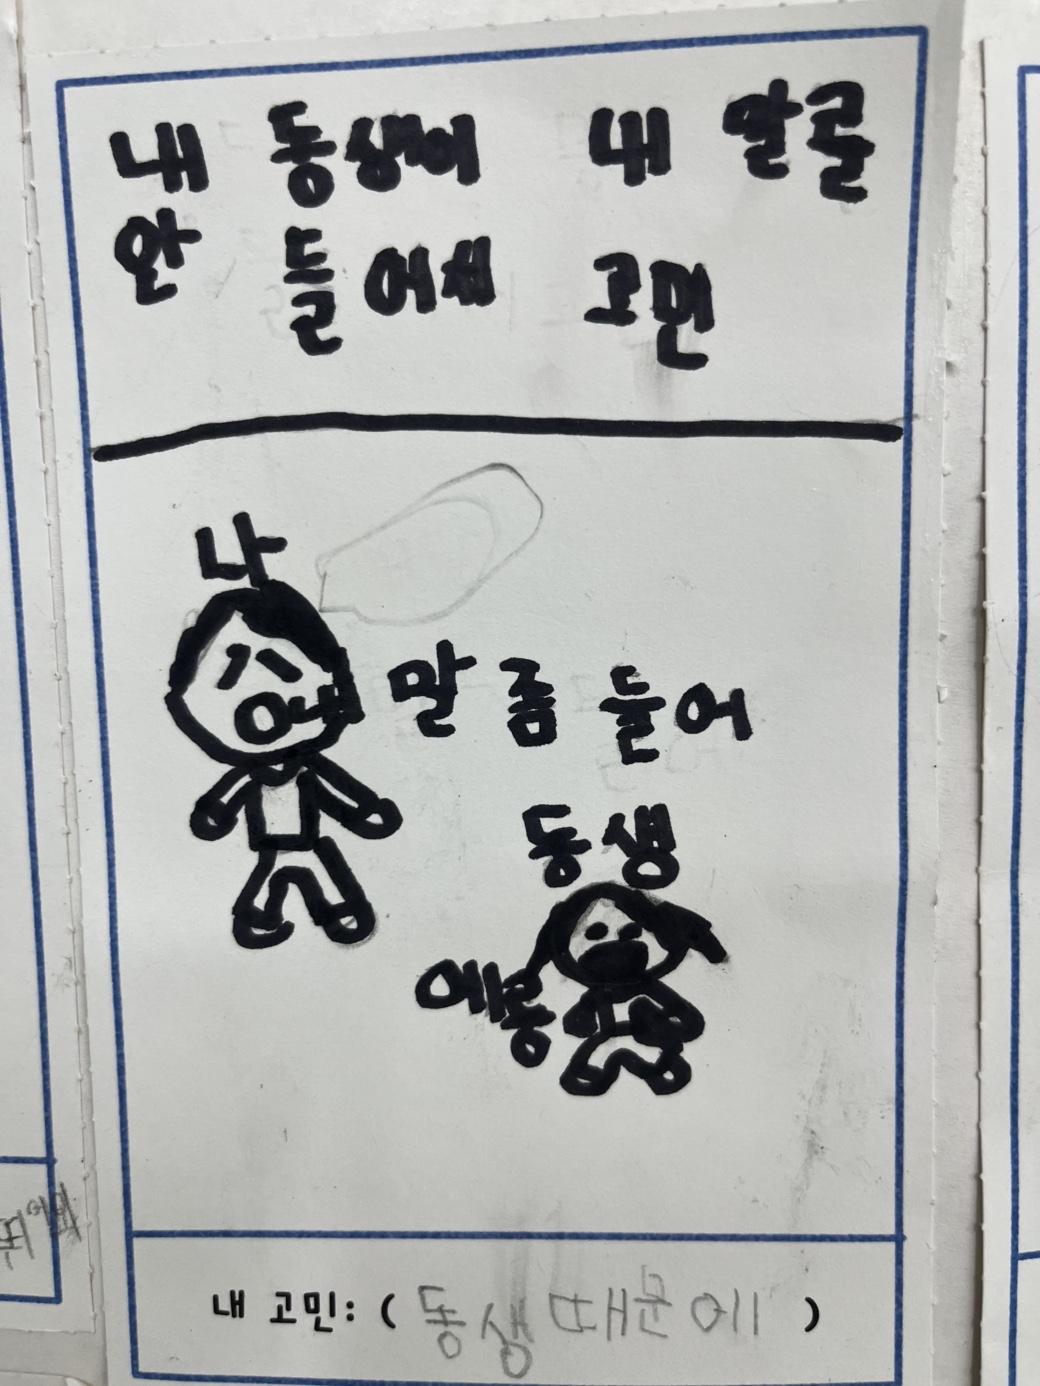 내 동생이 내 말를
안 들어서 고민
나
말 좀 들어
동생
에롱
내 고민: ( 동생 때문에 )